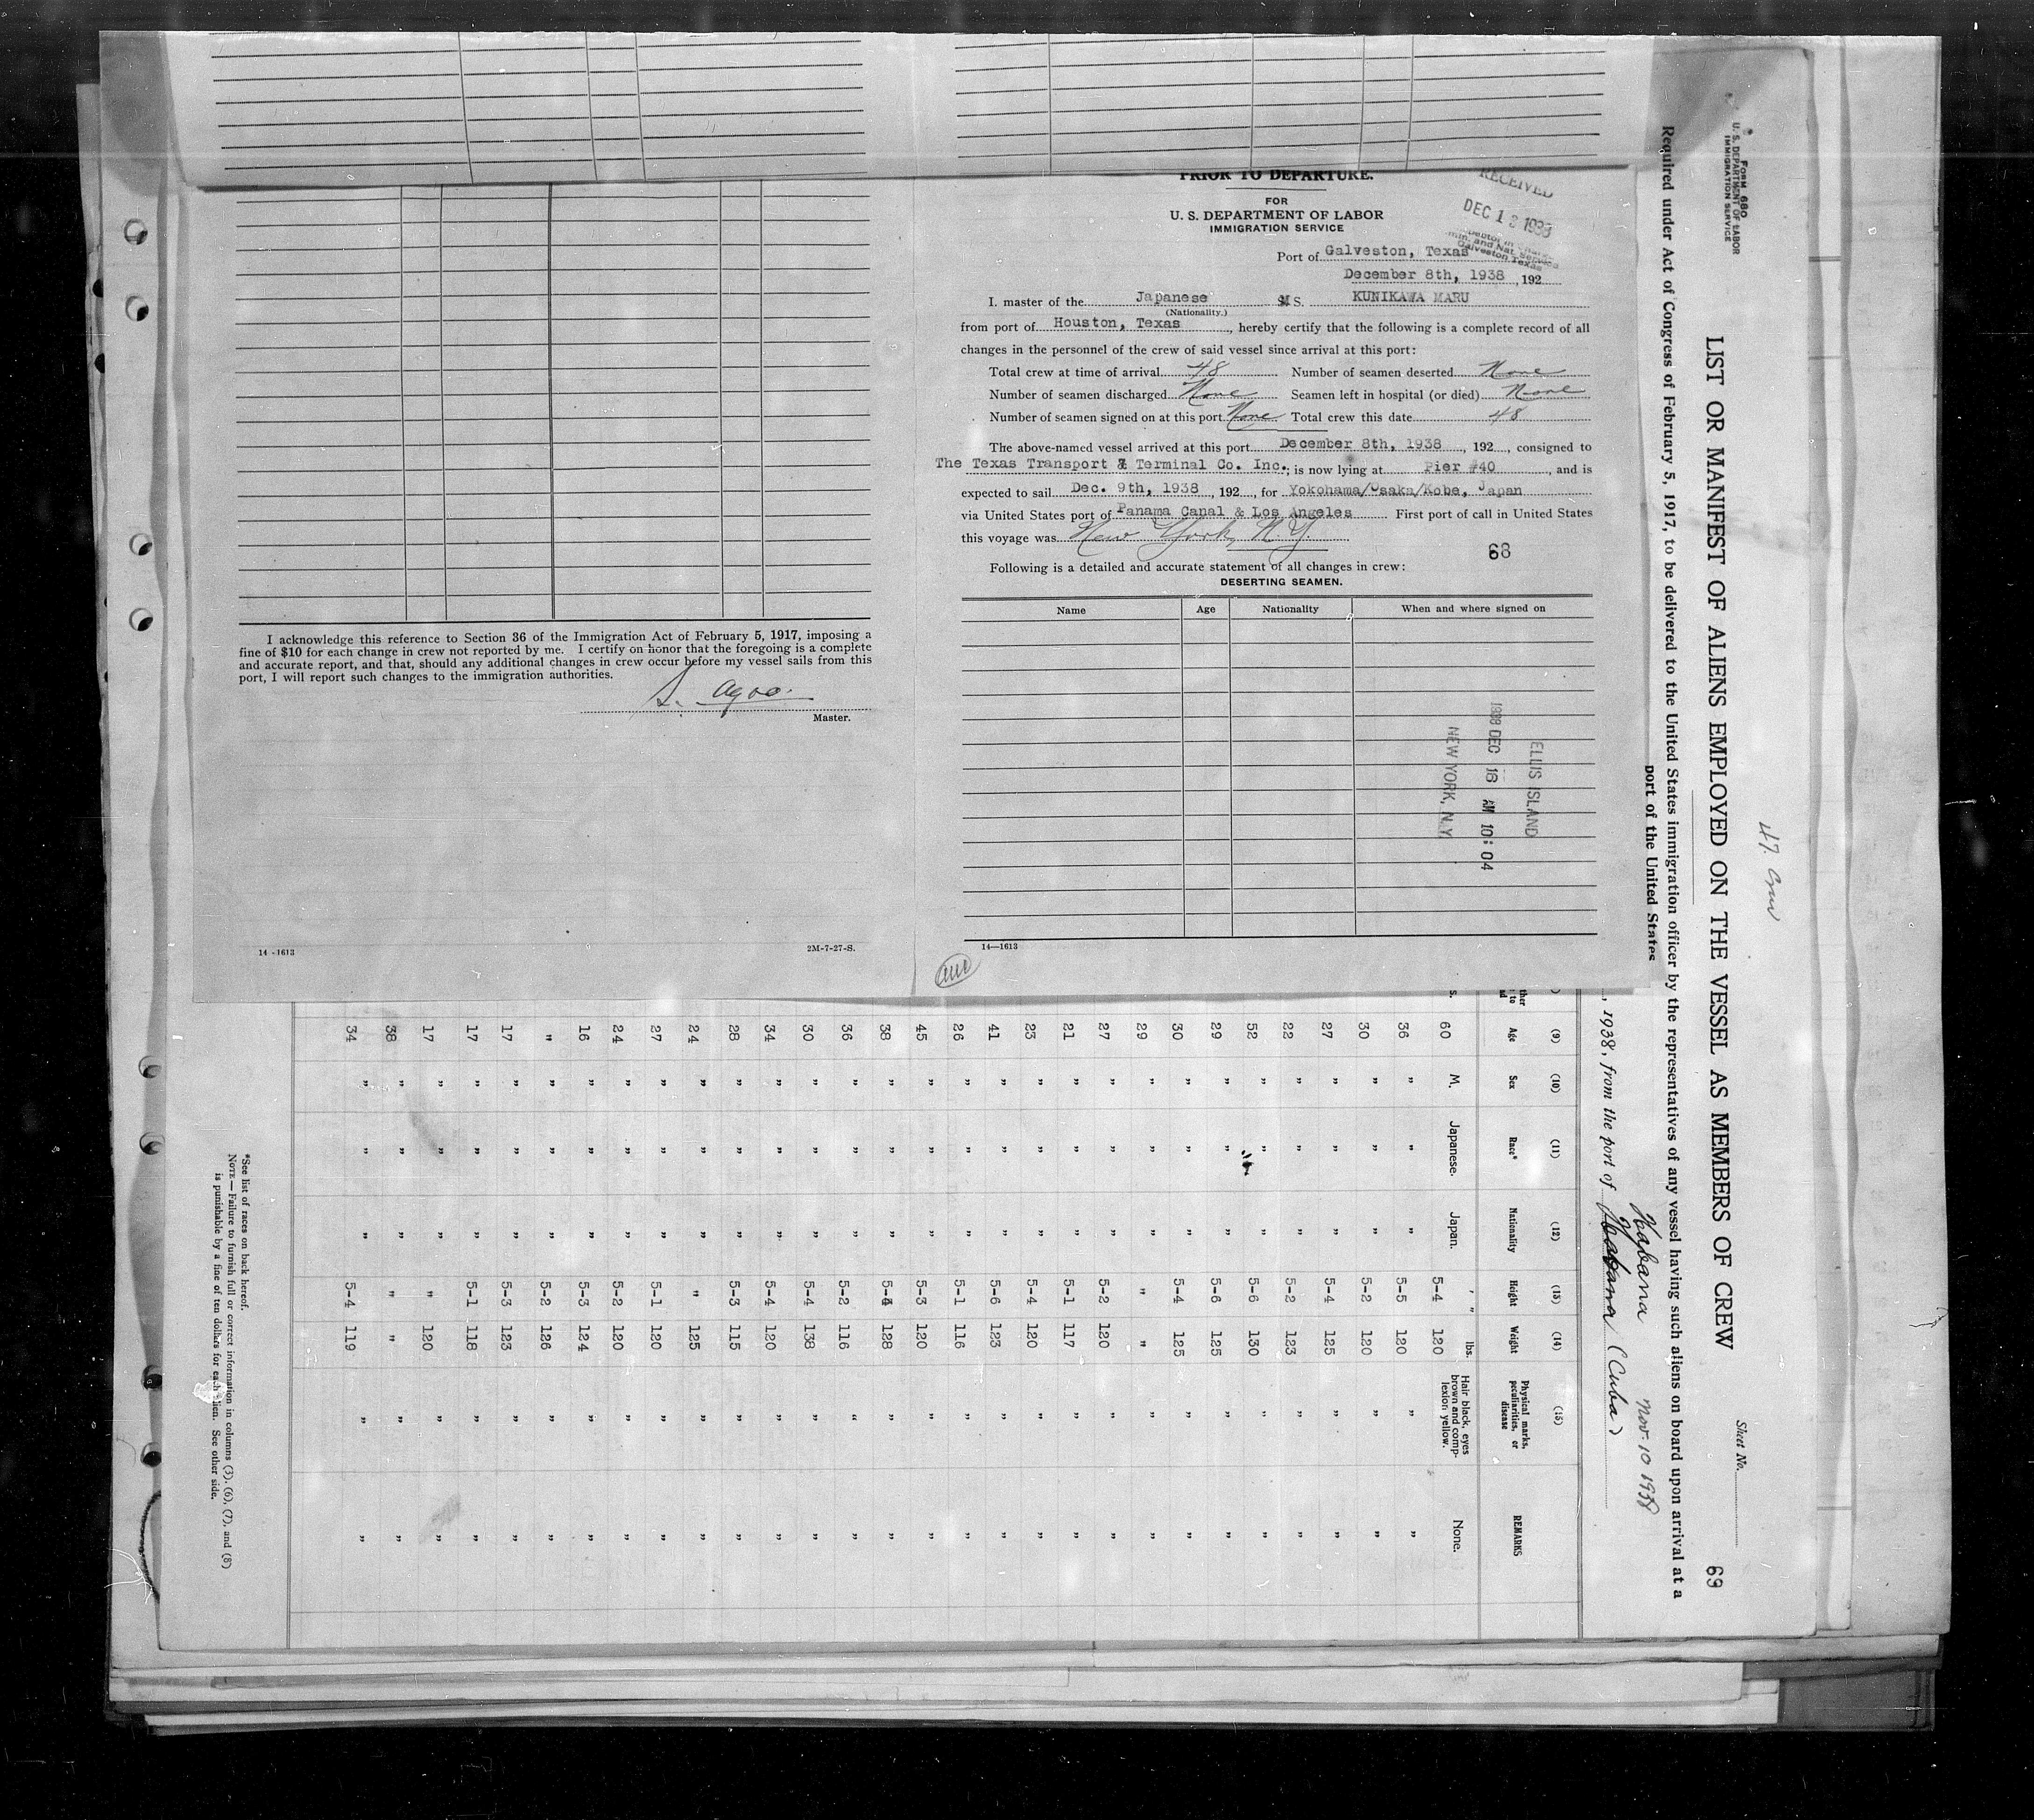 PRIOR TO DEPARTURE.
FOR
U. S. DEPARTMENT OF LABOR
IMMIGRATION SERVICE
RECEIVED
DEC 1 1938
Galveston Texas
Port of Galveston, Texas
December 8th, 1938, 192
I. master of the Japanese M S. KUNIKAWA MARU
(Nationality.)
from port of Houston, Texas, hereby certify that the following is a complete record of all
changes in the personnel of the crew of said vessel since arrival at this port:
Total crew at time of arrival 48 Number of seamen deserted None
Number of seamen discharged None Seamen left in hospital (or died) None
Number of seamen signed on at this port None Total crew this date 48
The above-named vessel arrived at this port December 8th, 1938, 192, consigned to
The Texas Transport & Terminal Co. Inc.; is now lying at Pier #40, and is
expected to sail Dec. 9th, 1938, 192, for Yokohama/Osaka/Kobe, Japan
via United States port of Panama Canal & Los Angeles First port of call in United States
this voyage was New York, N.Y.
68
Following is a detailed and accurate statement of all changes in crew:
DESERTING SEAMEN.
Name Age Nationality When and where signed on
ELLIS ISLAND
1938 DEC 16 AM 10:04
NEW YORK, N.Y.
14—1613
I acknowledge this reference to Section 36 of the Immigration Act of February 5, 1917, imposing a
fine of $10 for each change in crew not reported by me. I certify on honor that the foregoing is a complete
and accurate report, and that, should any additional changes in crew occur before my vessel sails from this
port, I will report such changes to the immigration authorities.
Master.
14-1613 2M-7-27-S.
Form 680
U. S. DEPARTMENT OF LABOR
IMMIGRATION SERVICE
47 Crew
Sheet No.
69
LIST OR MANIFEST OF ALIENS EMPLOYED ON THE VESSEL AS MEMBERS OF CREW
Required under Act of Congress of February 5, 1917, to be delivered to the United States immigration officer by the representatives of any vessel having such aliens on board upon arrival at a
port of the United States
Habana Nov. 10 1938
, 1938, from the port of Habana (Cuba)
(9) (10) (11) (12) (13) (14) (15)
Age Sex Race* Nationality Height Weight Physical marks, peculiarities, or disease REMARKS
60 M. Japanese. Japan. 5-4 120 lbs. Hair black, eyes brown and complexion yellow. None.
36 " " " 5-5 120 " "
30 " " " 5-2 120 " "
27 " " " 5-4 125 " "
22 " " " 5-2 123 " "
52 " " " 5-6 130 " "
29 " " " 5-6 125 " "
30 " " " 5-4 125 " "
29 " " " " " " "
27 " " " 5-2 120 " "
21 " " " 5-1 117 " "
23 " " " 5-4 120 " "
41 " " " 5-6 123 " "
26 " " " 5-1 116 " "
45 " " " 5-3 120 " "
38 " " " 5-4 128 " "
36 " " " 5-2 116 " "
30 " " " 5-4 138 " "
34 " " " 5-4 120 " "
28 " " " 5-3 115 " "
24 " " " " 125 " "
27 " " " 5-1 120 " "
24 " " " 5-2 120 " "
16 " " " 5-3 124 " "
" " " " 5-2 126 " "
17 " " " 5-3 123 " "
17 " " " 5-1 118 " "
17 " " " " 120 " "
38 " " " " " " "
34 " " " 5-4 119 " "
*See list of races on back hereof.
NOTE—Failure to furnish full or correct information in columns (3), (6), (7), and (8)
is punishable by a fine of ten dollars for each alien. See other side.